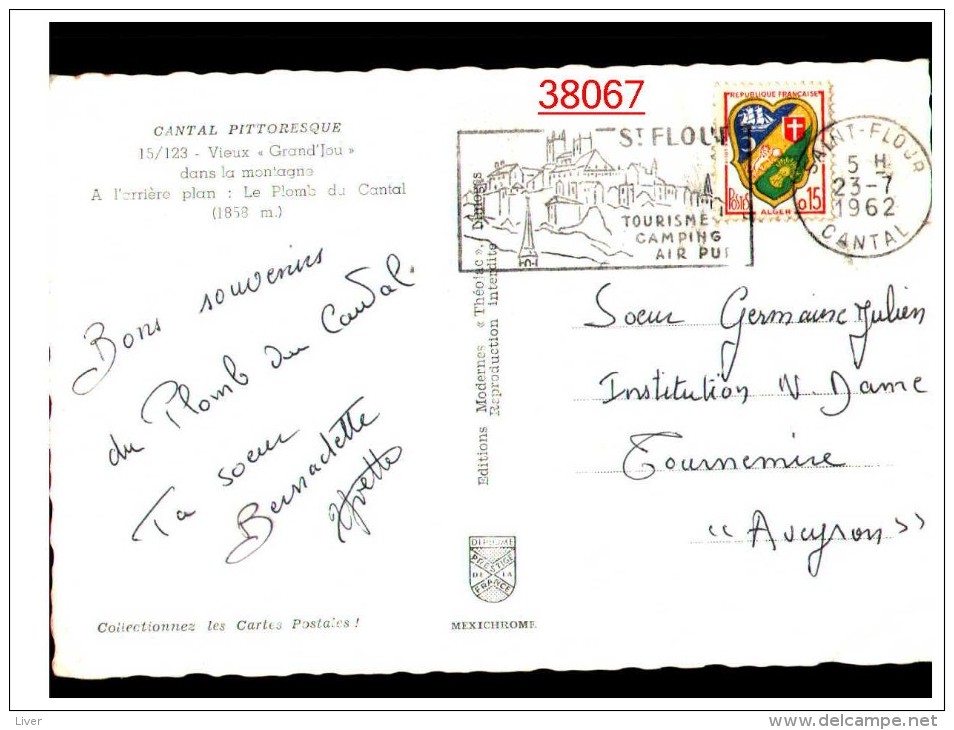 38067
CANTAL PITTORESQUE
15/123 - Vieux « Grand'Jou »
dans la montagne
A l'arrière plan : Le Plomb du Cantal
(1858 m.)
Bons souvenirs
du Plomb du Cantal.
Ta soeur
Bernadette
Yvette
Collectionnez les Cartes Postales !
Editions Modernes « Théojac », Limoges
Reproduction interdite
DIPLOME
PRESTIGE
DE LA
FRANCE
MEXICHROME
ST FLOUR
TOURISME
CAMPING
AIR PUR
REPUBLIQUE FRANÇAISE
POSTES
0.15
ALGER
SAINT-FLOUR
5 H
23-7
1962
CANTAL
Soeur Germaine Julien
Institution N. Dame
Tournemire
"Aveyron"
Liver
www.delcampe.net